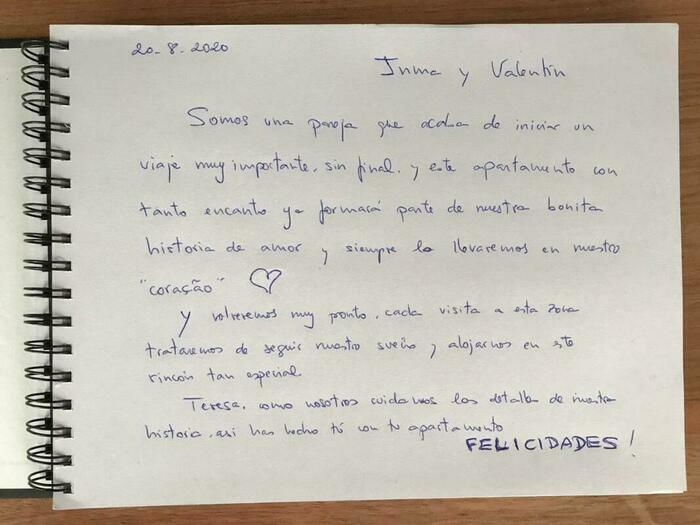 20-8-2020
Inma y Valentín
Somos una pareja que acaba de iniciar un
viaje muy importante, sin final, y este apartamento con
tanto encanto ya formará parte de nuestra bonita
historia de amor y siempre lo llevaremos en nuestro
"coração" ♡
Y volveremos muy pronto, cada visita a esta zona
trataremos de seguir nuestro sueño y alojarnos en este
rincón tan especial.
Teresa, como nosotros cuidamos los detalles de nuestra
historia, asi has hecho tú con tu apartamento
FELICIDADES!